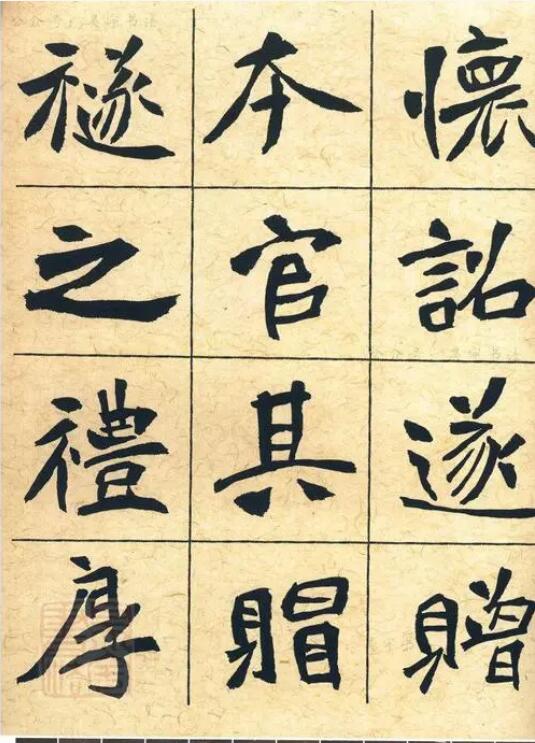 懷詔遂贈
本官其賵
襚之禮厚